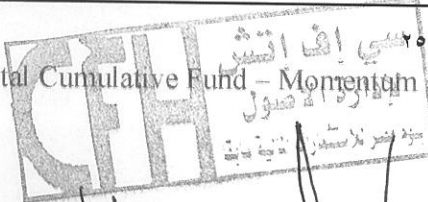 ٢٥
tal Cumulative Fund – Momentum
CFH
سي إف اتش
لإدارة الأصول